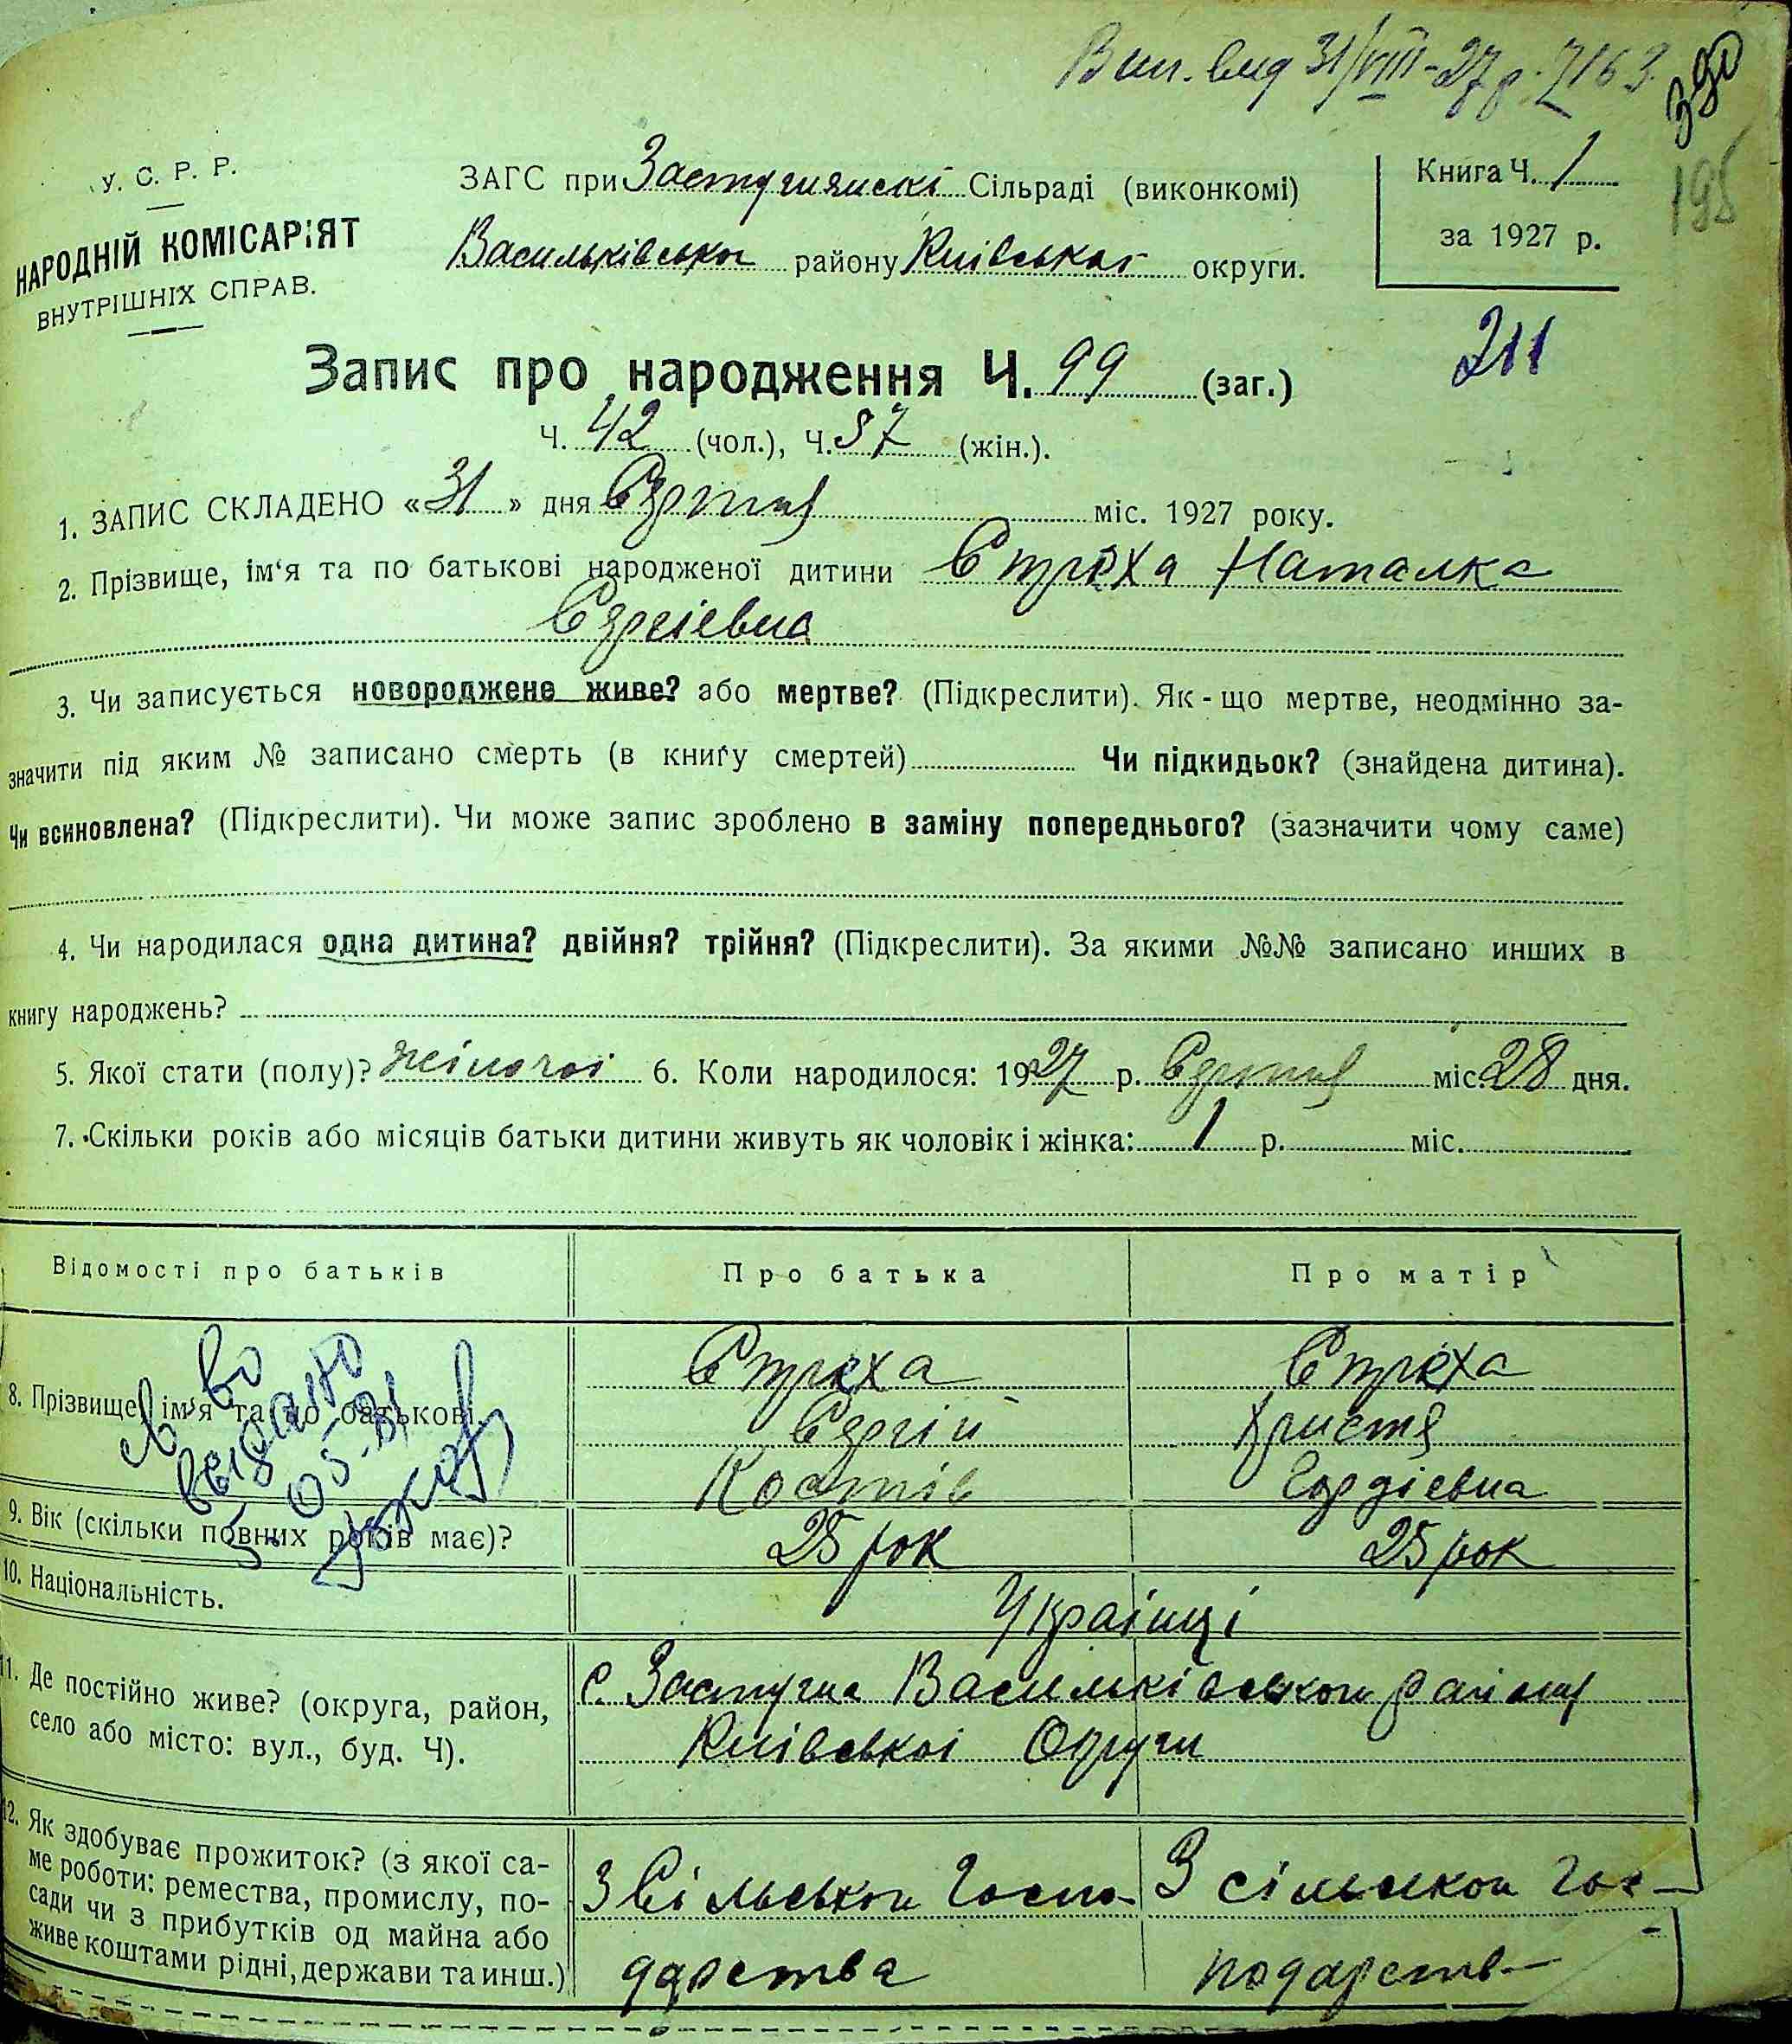 Вип. вид 31/VIII-27 р. 7163
390
198
У. С. Р. Р.
НАРОДНІЙ КОМІСАРІЯТ
ВНУТРІШНІХ СПРАВ.
ЗАГС при Застугнянскі Сільраді (виконкомі)
Васильківсько району Київської округи.
Книга Ч. 1
за 1927 р.
211
Запис про народження Ч. 99 (заг.)
Ч. 42 (чол.), Ч. 57 (жін.).
1. ЗАПИС СКЛАДЕНО «31» дня Серпня міс. 1927 року.
2. Прізвище, ім'я та по батькові народженої дитини Стрєха Наталка
Сергієвна
3. Чи записується новороджене живе? або мертве? (Підкреслити). Як-що мертве, неодмінно за-
значити під яким № записано смерть (в книгу смертей) Чи підкидьок? (знайдена дитина).
Чи всиновлена? (Підкреслити). Чи може запис зроблено в заміну попереднього? (зазначити чому саме)
4. Чи народилася одна дитина? двійня? трійня? (Підкреслити). За якими №№ записано инших в
книгу народжень?
5. Якої стати (полу)? жіночої 6. Коли народилося: 1927 р. Серпня міс. 28 дня.
7. Скільки років або місяців батьки дитини живуть як чоловік і жінка: 1 р. міс.
Відомості про батьків Про батька Про матір
8. Прізвище, ім'я та по батькові.
Стрєха Стрєха
Сергій Христя
Костів Гордієвна
св во
выдано
5-05-81
9. Вік (скільки повних років має)? 25 рок 25 рок
10. Національність. Українці
11. Де постійно живе? (округа, район,
село або місто: вул., буд. Ч).
с. Застугна Васильківського району
Київської Округи
12. Як здобуває прожиток? (з якої са-
ме роботи: ремества, промислу, по-
сади чи з прибутків од майна або
живе коштами рідні, держави та инш.)
З Сільського Госпо- З сільского гос-
дарства подарств-